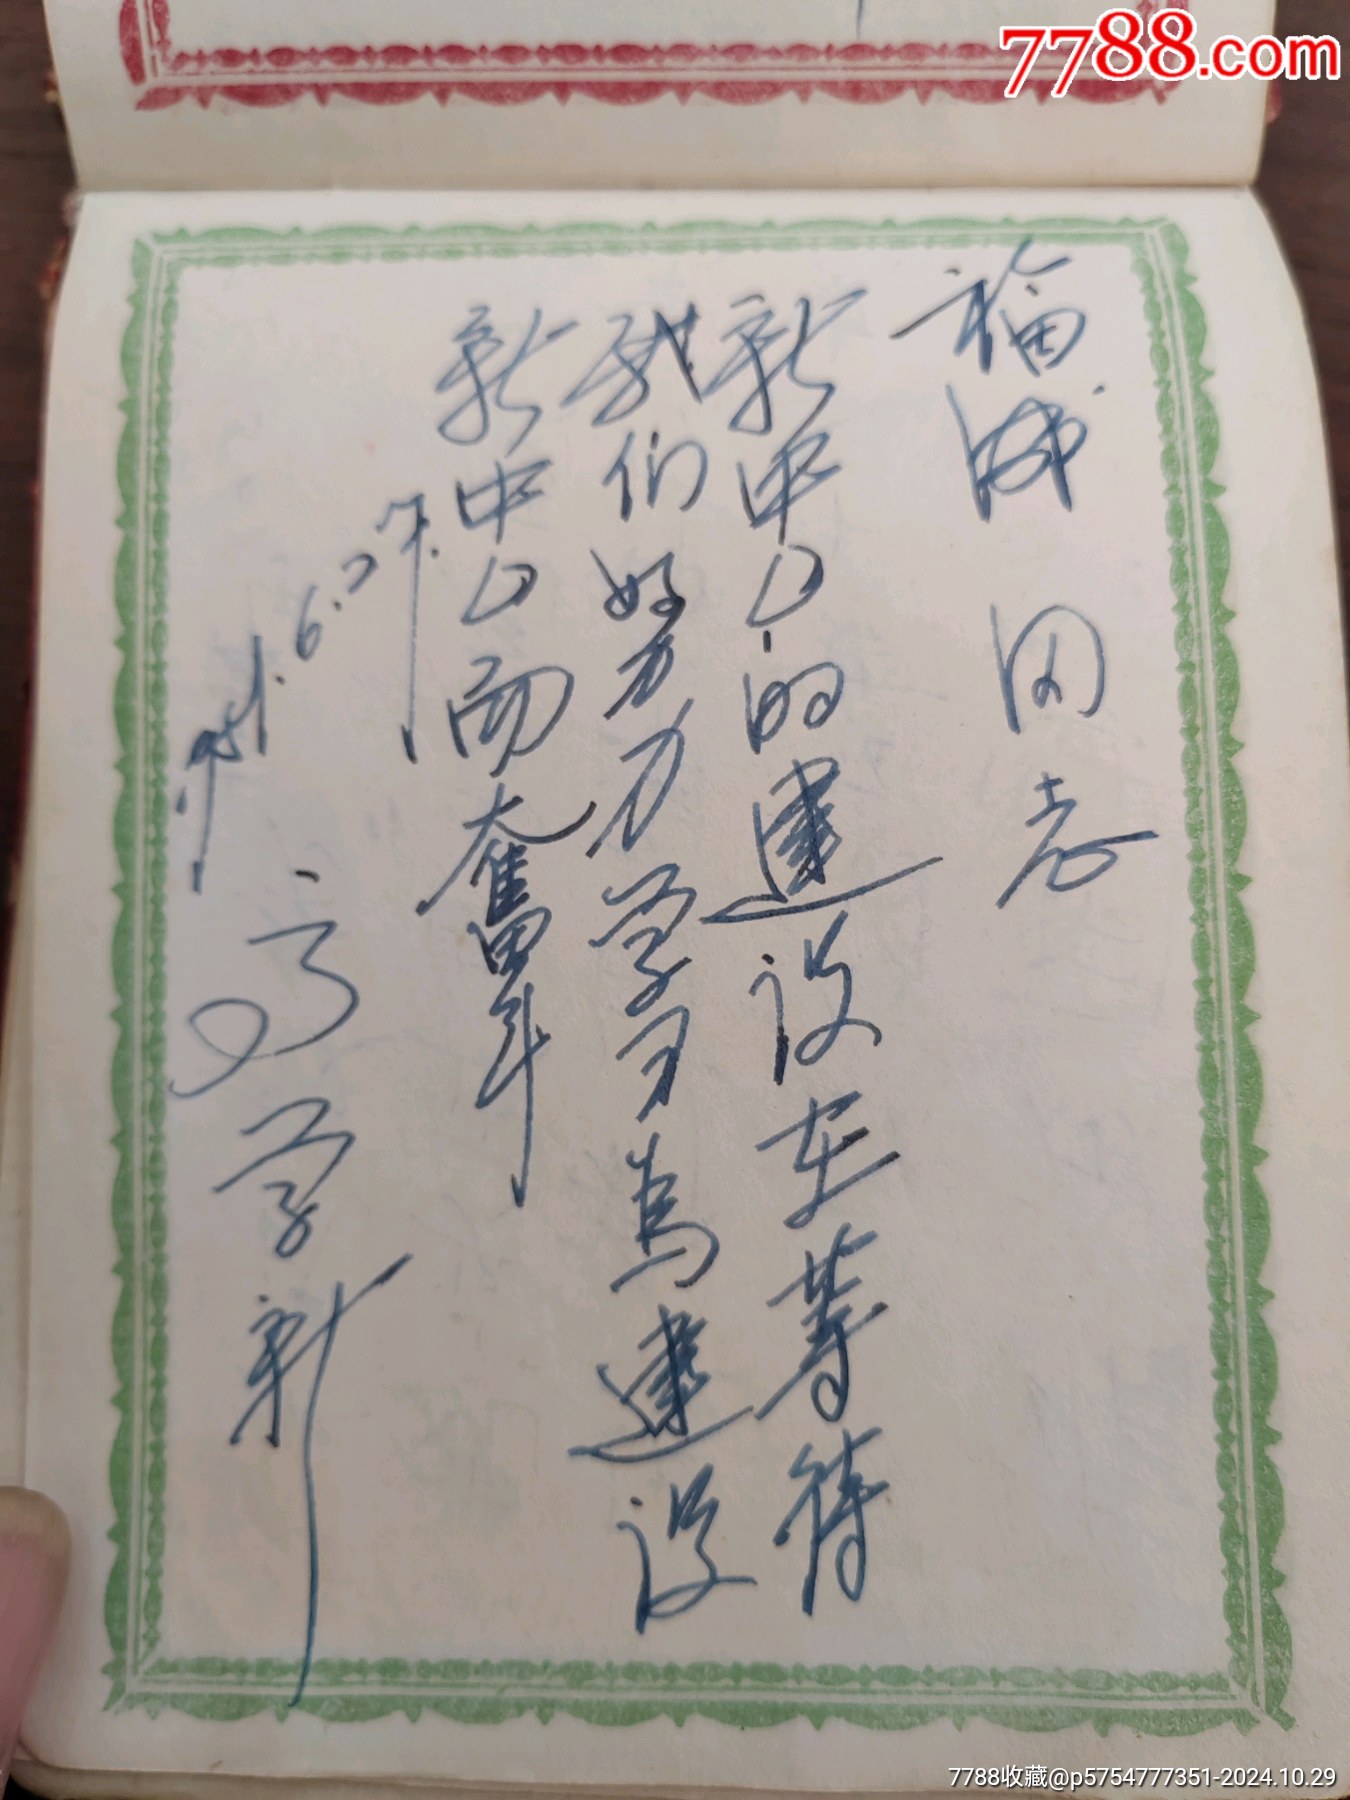 7788.com
福成同志
新中囗的建设在等待
我们好努力学习为建设
新中囗而奋斗
1951.6.27.
高学新
7788收藏@p5754777351-2024.10.29